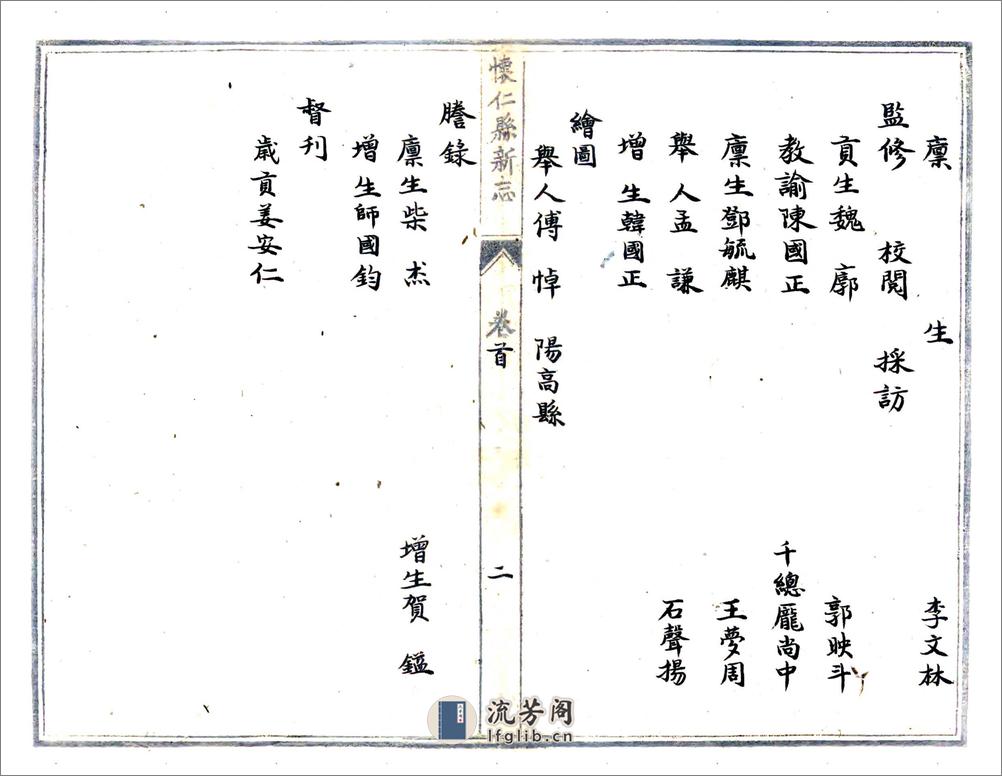 廩生 李文林
監修 校閱 採訪
貢生魏廓 郭映斗
教諭陳國正 千總龐尚中
廩生鄧毓麒 王夢周
舉人孟謙 石聲揚
增生韓國正
繪圖
舉人傅悼 陽高縣
懷仁縣新志 卷首 二
謄錄
廩生柴杰 增生賀鎰
增生師國鈞
督刊
歲貢姜安仁
流芳阁
lfglib.cn